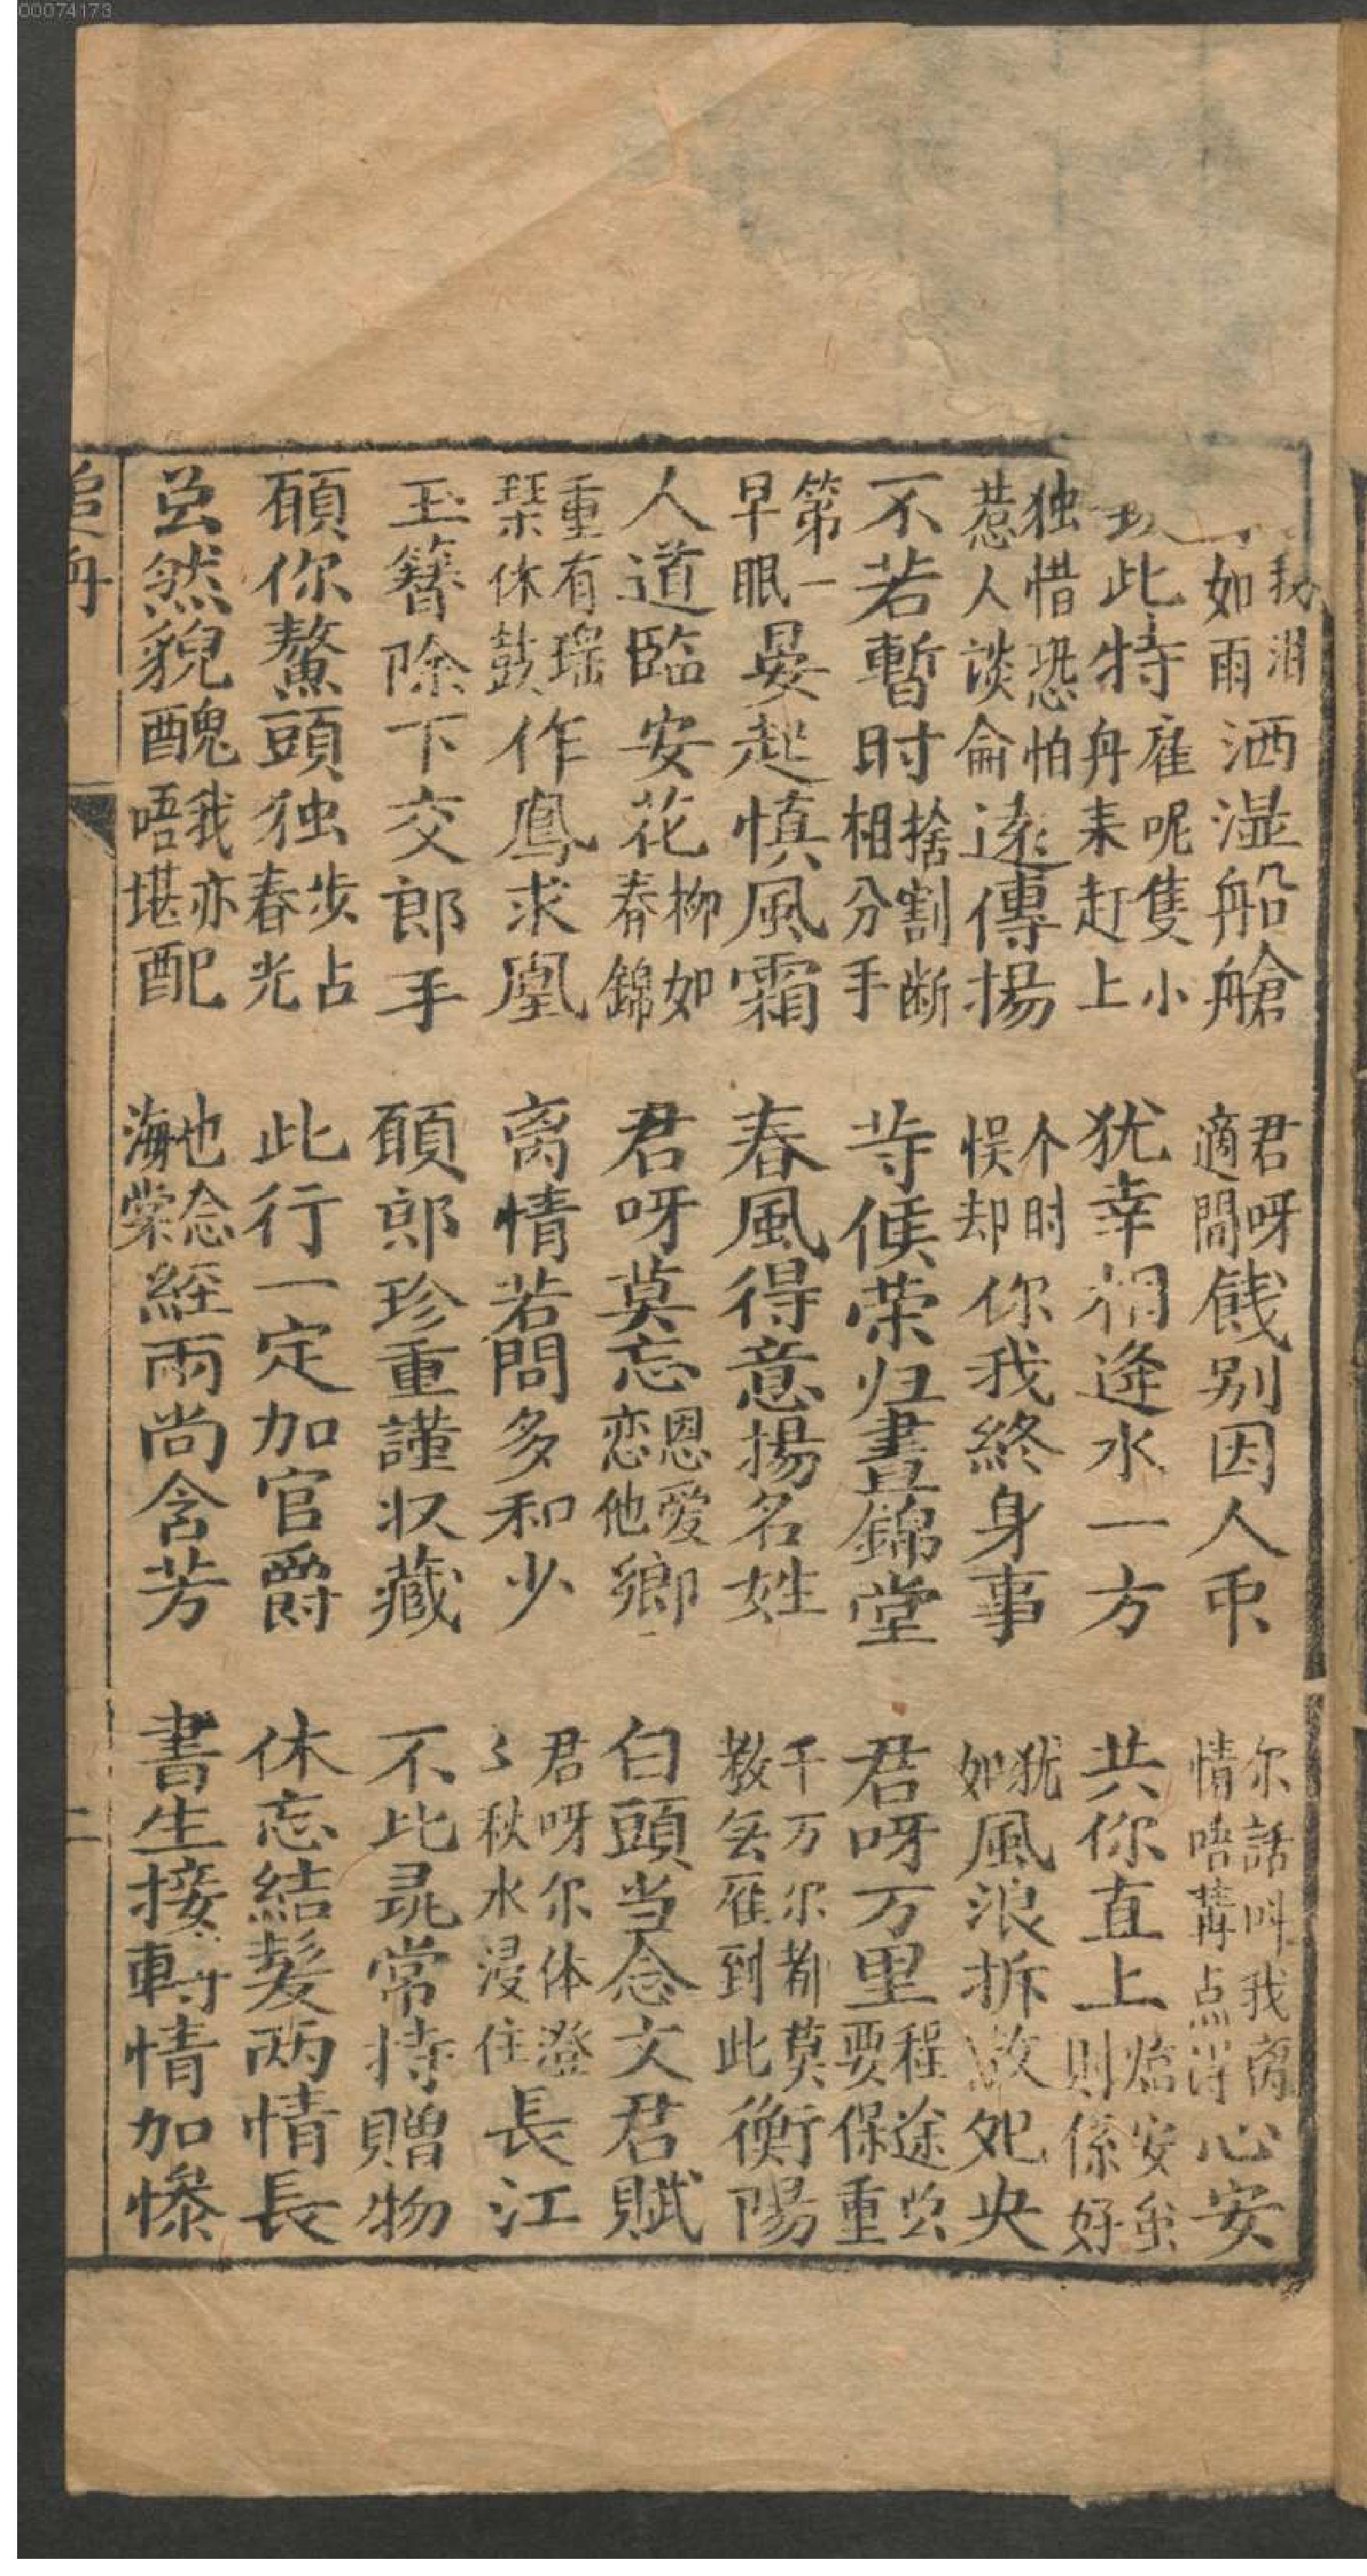 00074173
我泪如雨洒湿船艙 君呀適間餞别因人帀 尔話叫我离情唔講点得心安
此特雇呢隻小舟来赶上 犹幸相逢水一方 共你直上臨安虽則係好
独惜恐怕惹人談侖远傳揚 个时悮却你我終身事 犹如風浪拆散死央
不若暫时捨割断相分手 䓁候荣归晝錦堂 君呀万里程途必要保重
第一早眼晏起慎風霜 春風得意揚名姓 千万尔都莫教矢雁到此衡陽
人道臨安花柳如春錦 君呀莫忘恩愛恋他鄉 白頭当念文君賦
重有瑶琹休鼓作鳳求凰 离情若問多和少 君呀尔体澄〻秋水浸住長江
玉簪除下交郎手 願郎珍重謹収藏 不比尋常持贈物
願你鰲頭独步占春光 此行一定加官爵 休忘結髮両情長
虽然貌醜我亦唔堪配 也念海棠経雨尚含芳 書生接轉情加慘
追舟
二